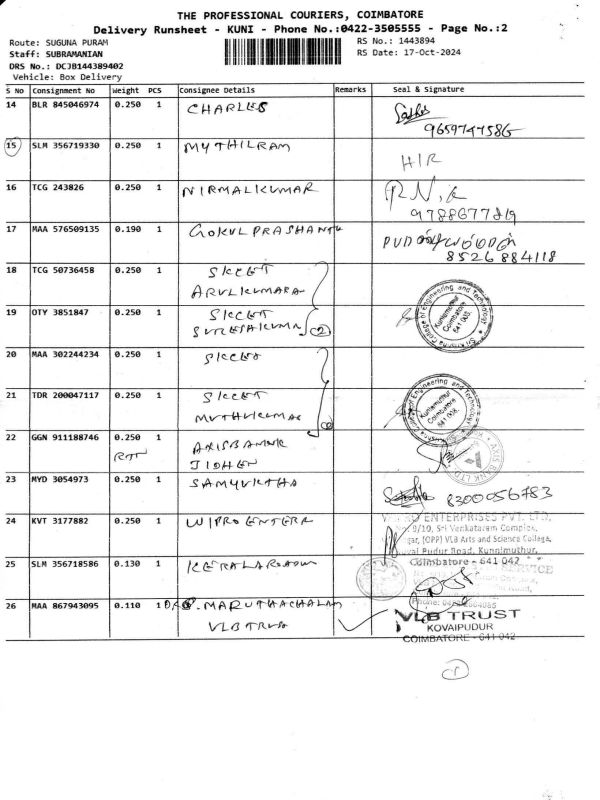 THE PROFESSIONAL COURIERS, COIMBATORE
Delivery Runsheet - KUNI - Phone No.:0422-3505555 - Page No.:2
Route: SUGUNA PURAM
RS No.: 1443894
Staff: SUBRAMANIAN
RS Date: 17-Oct-2024
DRS No.: DCJB144389402
Vehicle: Box Delivery
S No Consignment No Weight PCS Consignee Details Remarks Seal & Signature
14 BLR 845046974 0.250 1 CHARLES
9659747586
15 SLM 356719330 0.250 1 MYTHILRAM HIR
16 TCG 243826 0.250 1 NIRMALKUMAR
9788677819
17 MAA 576509135 0.190 1 GOKULPRASHANTH
8526884118
18 TCG 50736458 0.250 1 SKCET
ARULKUMARA
19 OTY 3851847 0.250 1 SKCET
(2)
20 MAA 302244234 0.250 1 SKCET
21 TDR 200047117 0.250 1 SKCET
MUTHUKUMAR
Sri Krishna College of Engineering and Technology
Kuniamuthur
Coimbatore
641 008.
22 GGN 911188746 0.250 1 AXISBANK
AXIS BANK LTD
23 MYD 3054973 0.250 1 SAMYUKTHA 8300056783
24 KVT 3177882 0.250 1 WIPRO ENTERP
ENTERPRISES PVT. LTD.
9/10, Sri Venkataram Complex,
(OPP) VLB Arts and Science College,
Pudur Road, Kunnimuthur,
Coimbatore - 641 042
25 SLM 356718586 0.130 1
SERVICE
Phone:
26 MAA 867943095 0.110 1 MARUTHACHALAM
VLB TRUST
VLB TRUST
KOVAIPUDUR
COIMBATORE - 641 042